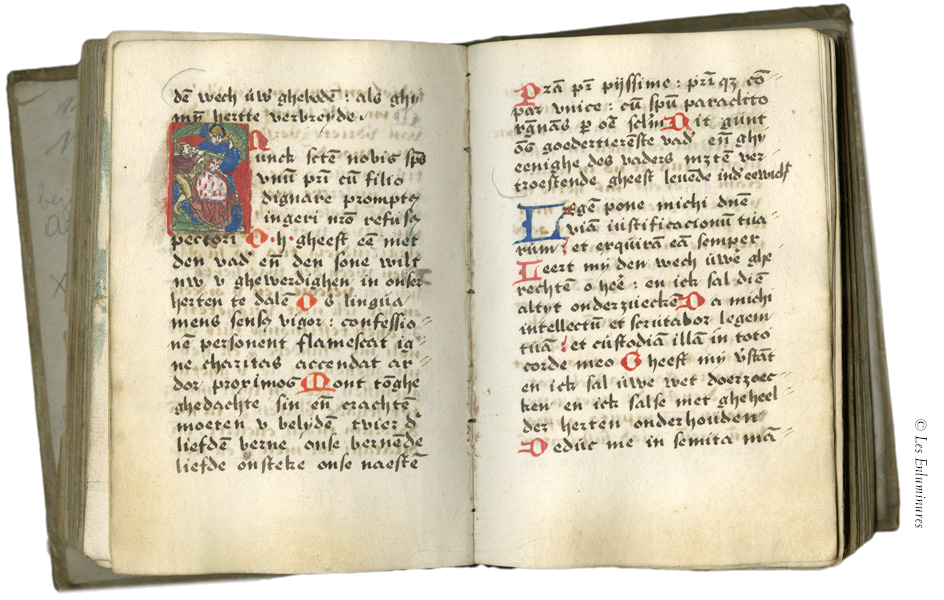 dē wech ūw̄ ghebodē : als ghy
myn hertte verbreyde
Nunck sctē nobis spc̄
vnuȝ pri cū filio
dignare promptꝰ
ingeri nr̄o refusꝰ
pectori O · h · gheest eē met
den vad̕ eñ den sone wilt
nw v ghewerdighen in onser
herten te dalē O s lingua
mens sensꝰ vigor : confessio
nē personent flamescat ig
ne charitas accendat ar
dor proximos Mont tōghe
ghedachte sin eñ crachtē
moeten v belydē tvier d̕
liefdē berne onse bernēde
liefde ōnsteke onse naestē
Prā pr̄ pijssime : pr̄iqȝ cō
par vnice : cū spū paraclito
rgnās ꝑ oē sc̄lm Dit gunt
ōs goedertierēste vad̕ eñ ghy
eenighe des vaders mȝtē ver
troestende gheest leuēde ind̕ eewich̕t
Legē pone michi dnē
viā iustificacionū tua
rum : et exquirā eā semper
Leert my den wech uwē ghe
rechtē o heē : en ick sal diē
altyt onderzueckē Da michi
intellectū et scrutabor legem
tuā : et custodiā illā in toto
corde meo Gheeft my v̄stāt
en ick sal ūwe wet doerzoec
ken en ick salse met gheheel
der herten onderhouden
Deduc me in semita mā
© Les Enluminures